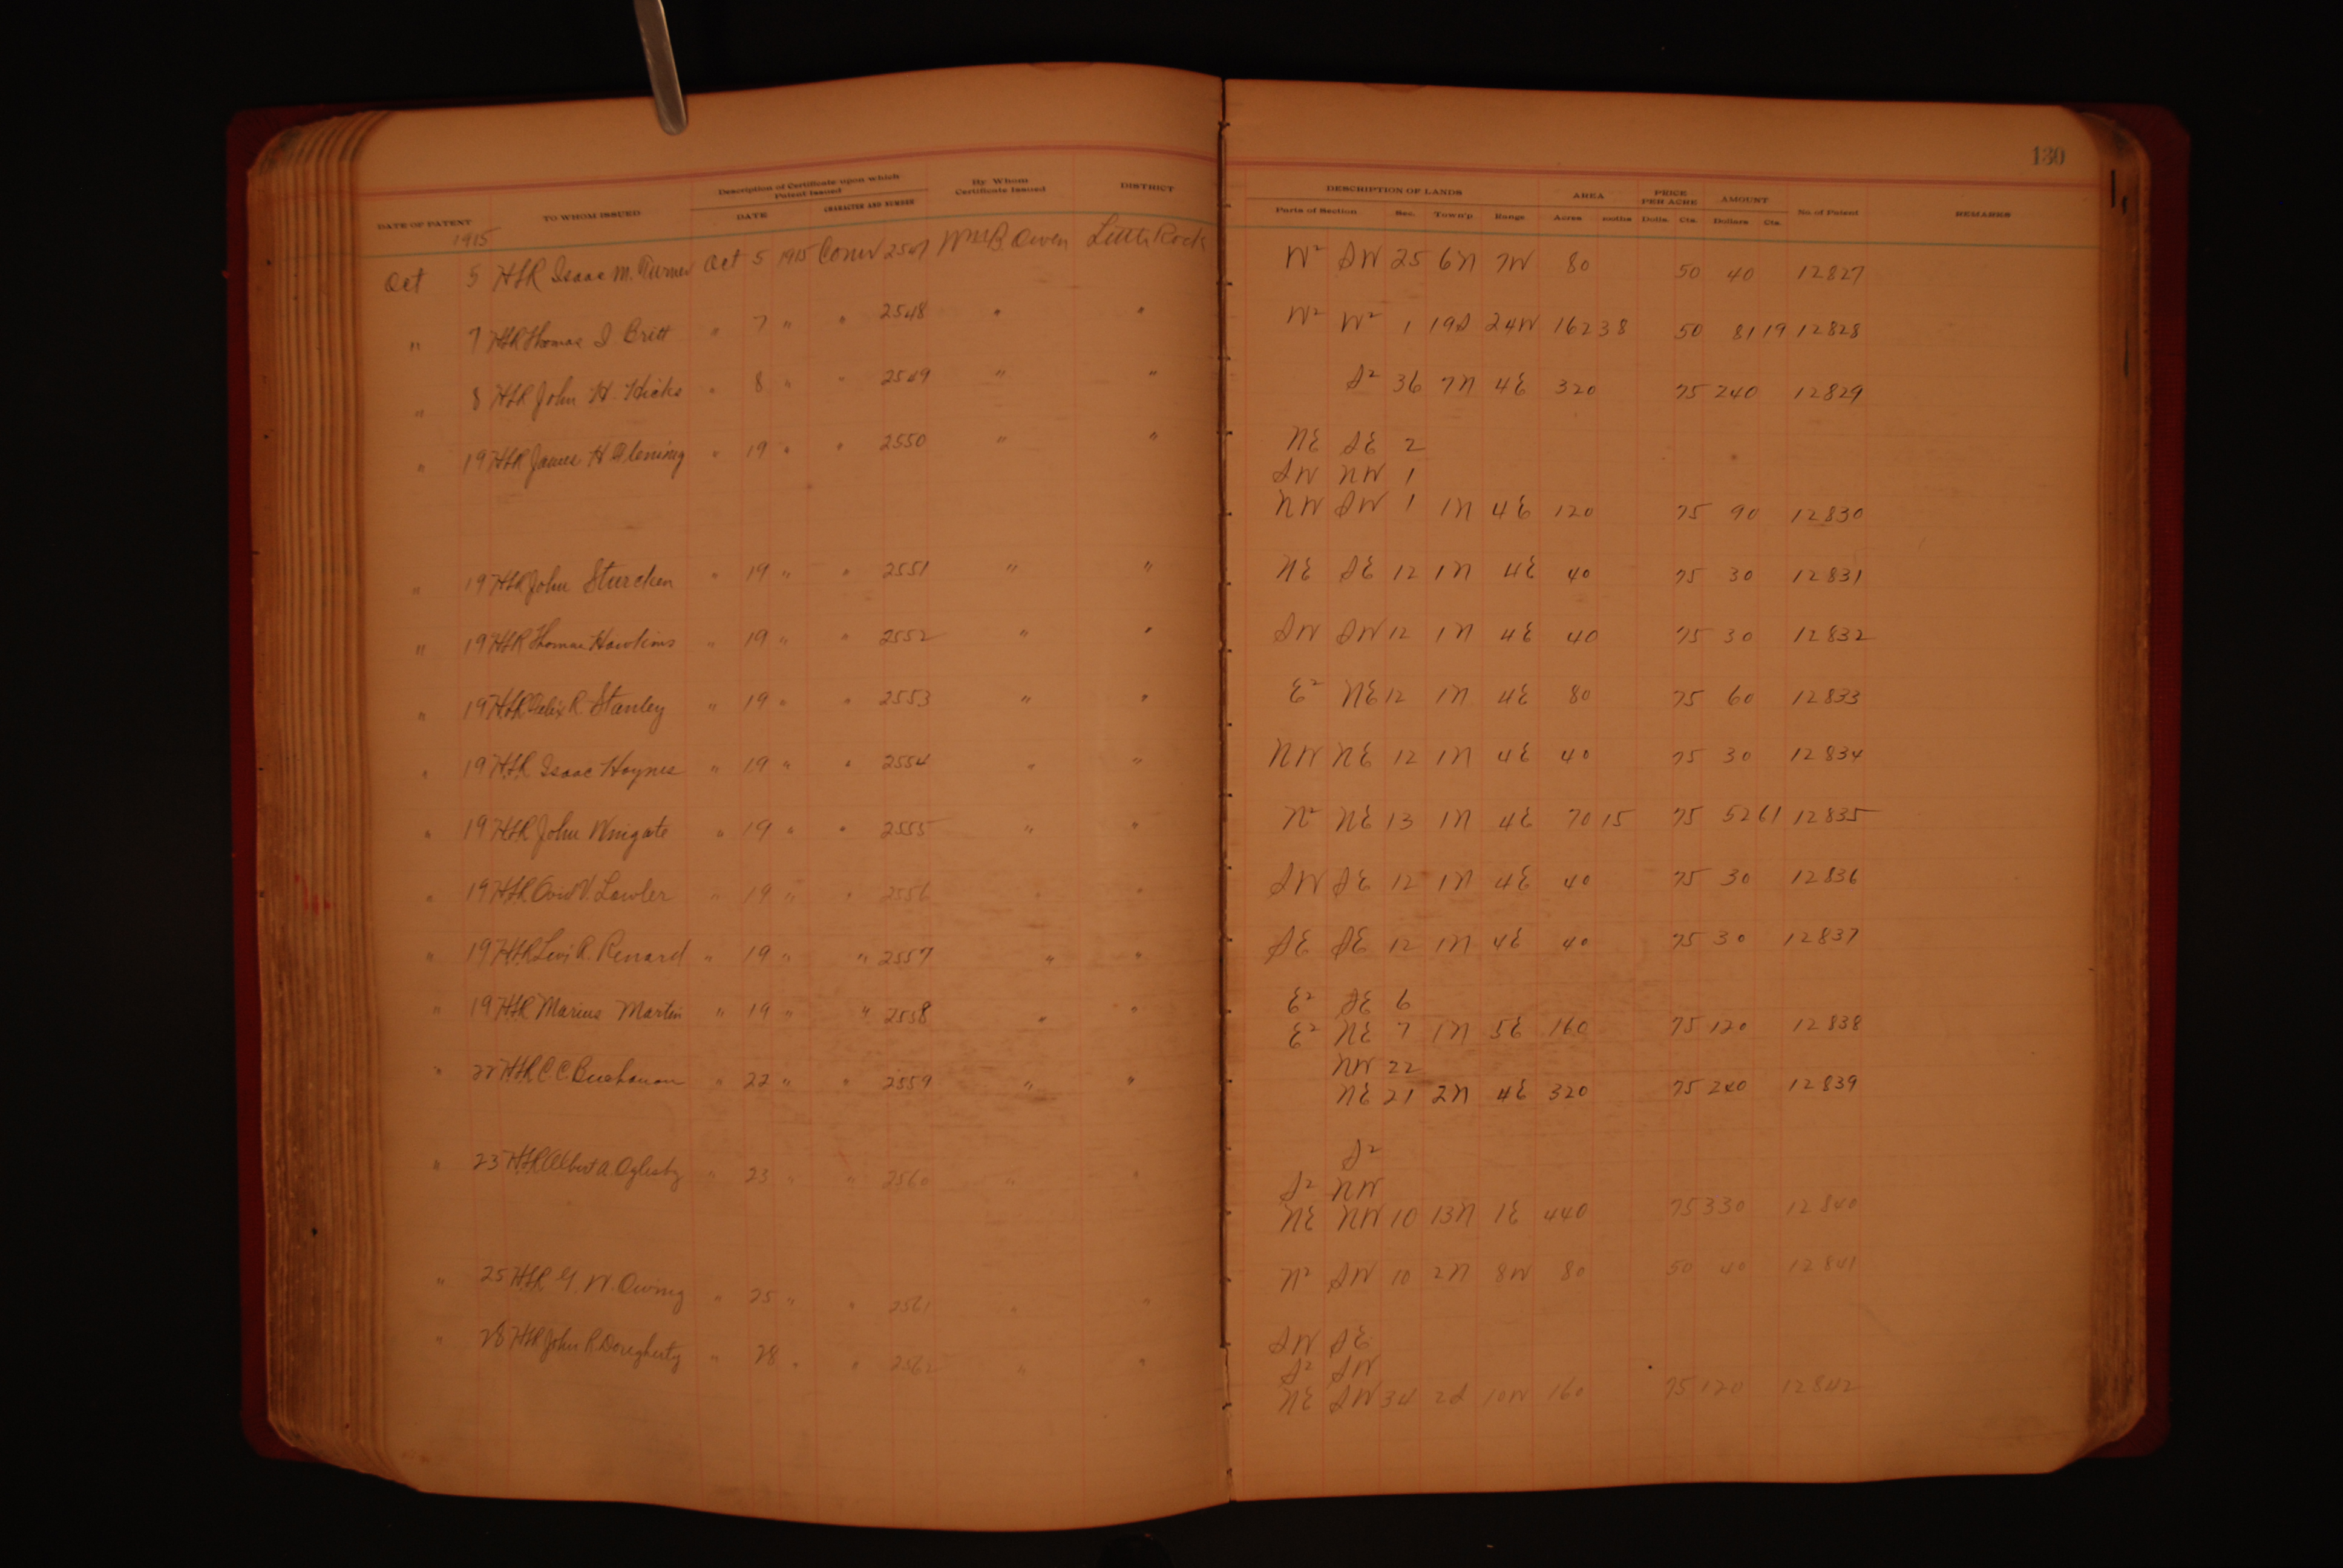 130
DATE OF PATENT TO WHOM ISSUED Description of Certificate upon which Patent Issued DATE CHARACTER AND NUMBER By Whom Certificate Issued DISTRICT DESCRIPTION OF LANDS Parts of Section Sec. Town'p Range AREA Acres PRICE PER ACRE Dolls. Cts. AMOUNT Dollars Cts. No. of Patent REMARKS
1915
Oct 5 Isaac M. Turner Oct 5 1915 2547 Wm B Owen Little Rock W² SW 25 6N 7W 80 50 40 12827
" 7 Thomas J. Britt " 7 " " 2548 " " W² W² 1 19S 24W 162 38 50 81 19 12828
" 8 John H. Hicks " 8 " " 2549 " " S² 36 7N 4E 320 75 240 12829
" 19 James H Fleming " 19 " " 2550 " " NE SE 2
SW NW 1
NW SW 1 1N 4E 120 75 90 12830
" 19 John Sturcken " 19 " " 2551 " " NE SE 12 1N 4E 40 75 30 12831
" 19 Thomas Hawkins " 19 " " 2552 " " SW SW 12 1N 4E 40 75 30 12832
" 19 Felix R. Stanley " 19 " " 2553 " " E² NE 12 1N 4E 80 75 60 12833
" 19 Isaac Haynes " 19 " " 2554 " " NW NE 12 1N 4E 40 75 30 12834
" 19 John Wingate " 19 " " 2555 " " N² NE 13 1N 4E 70 15 75 52 61 12835
" 19 Ovid V. Lawler " 19 " " 2556 " " SW SE 12 1N 4E 40 75 30 12836
" 19 Levi R. Renard " 19 " " 2557 " " SE SE 12 1N 4E 40 75 30 12837
" 19 Marius Martin " 19 " " 2558 " " E² SE 6
E² NE 7 1N 5E 160 75 120 12838
" 22 C. C. Buchanan " 22 " " 2559 " " NW 22
NE 21 2N 4E 320 75 240 12839
" 23 Albert A Oglesby " 23 " " 2560 " " S²
S² NW
NE NW 10 13N 1E 440 75 330 12840
" 25 W. Owing " 25 " " 2561 " " N² SW 10 2N 8W 80 50 40 12841
" 28 John R Dougherty " 28 " " 2562 " " SW SE
S² SW
NE SW 34 2S 10W 160 75 120 12842